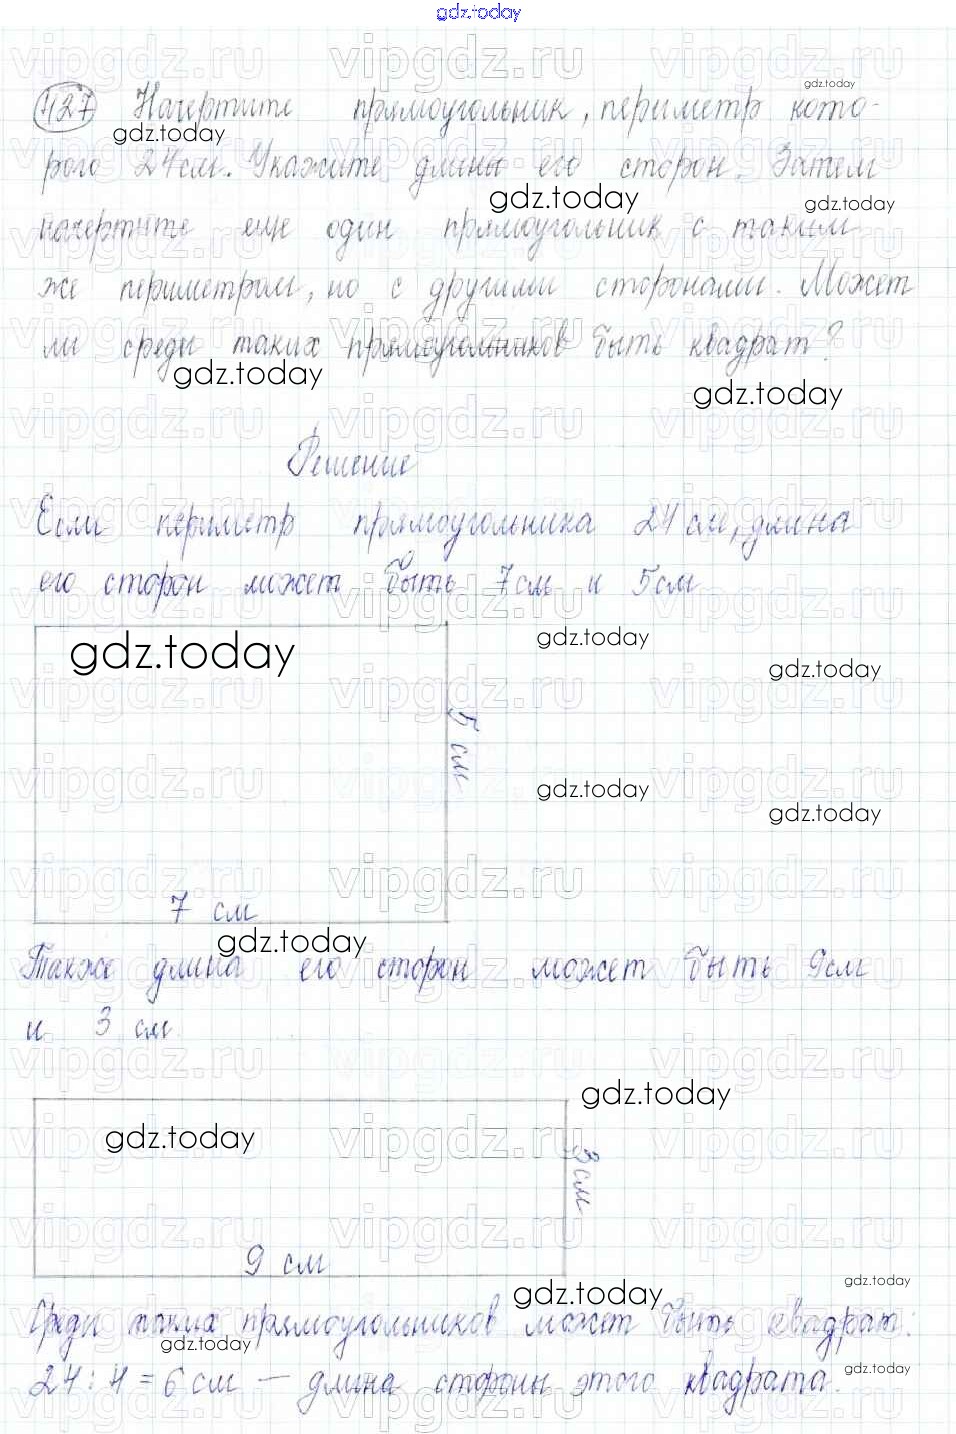 gdz.today
427 Начертите прямоугольник, периметр кото-
рого 24 см. Укажите длины его сторон. Затем
начертите еще один прямоугольник с таким
же периметром, но с другими сторонами. Может
ли среди таких прямоугольников быть квадрат?
Решение
Если периметр прямоугольника 24 см, длина
его сторон может быть 7 см и 5 см
5 см
7 см
Также длина его сторон может быть 9 см
и 3 см
3 см
9 см
Среди таких прямоугольников может быть квадрат.
24 : 4 = 6 см — длина стороны этого квадрата.